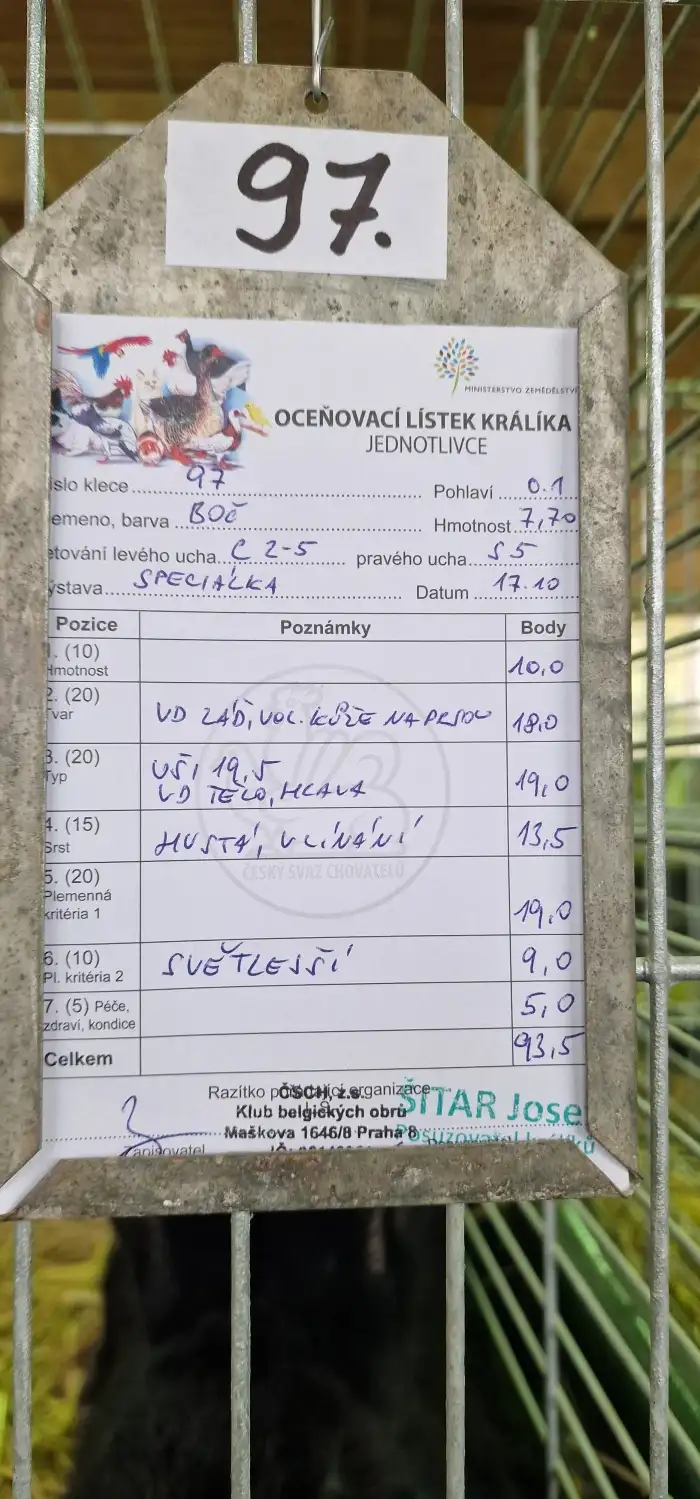 97.
MINISTERSTVO ZEMĚDĚLSTVÍ
OCEŇOVACÍ LÍSTEK KRÁLÍKA
JEDNOTLIVCE
íslo klece 97 Pohlaví 0.1
emeno, barva BOČ Hmotnost 7,70
etování levého ucha C 2-5 pravého ucha S 5
ýstava SPECIÁLKA Datum 17.10
Pozice Poznámky Body
1. (10)
Hmotnost 10,0
2. (20)
Tvar VD ZÁĎ, VOL. KŮŽE NA PRSOU 18,0
3. (20)
Typ UŠI 19,5
VD TĚLO, HLAVA 19,0
4. (15)
Srst HUSTÁ, V LÍNÁNÍ 13,5
5. (20)
Plemenná
kritéria 1 19,0
6. (10)
Pl. kritéria 2 SVĚTLEJŠÍ 9,0
7. (5) Péče,
zdraví, kondice 5,0
Celkem 93,5
ČESKÝ SVAZ CHOVATELŮ
Razítko organizace
ČSCH, z.s.
Klub belgických obrů
Maškova 1646/8 Praha 8
ŠITAR Jose
Posuzovatel
Zapisovatel